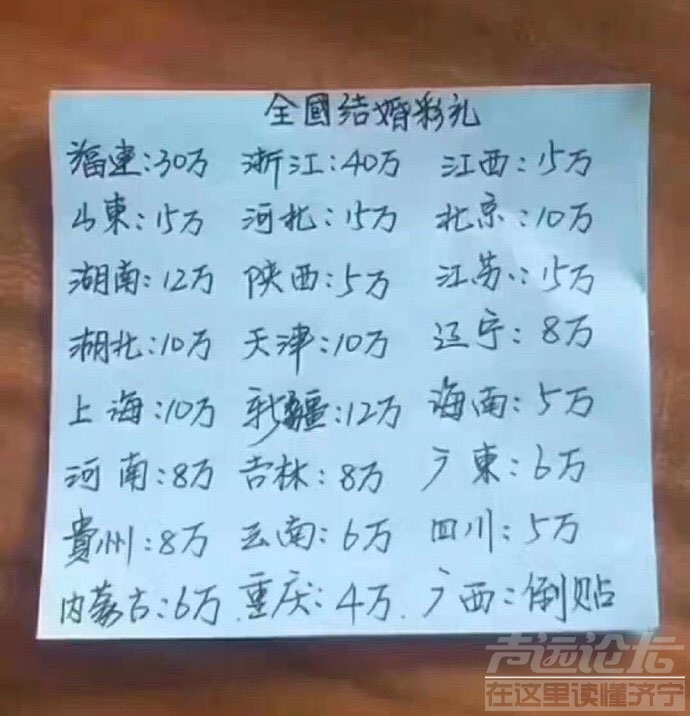 全國结婚彩礼
福建:30万 浙江:40万 江西:15万
山東:15万 河北:15万 北京:10万
湖南:12万 陕西:5万 江苏:15万
湖北:10万 天津:10万 辽宁:8万
上海:10万 新疆:12万 海南:5万
河南:8万 吉林:8万 广東:6万
貴州:8万 云南:6万 四川:5万
内蒙古:6万 重庆:4万 广西:倒贴
声远论坛
在这里读懂济宁